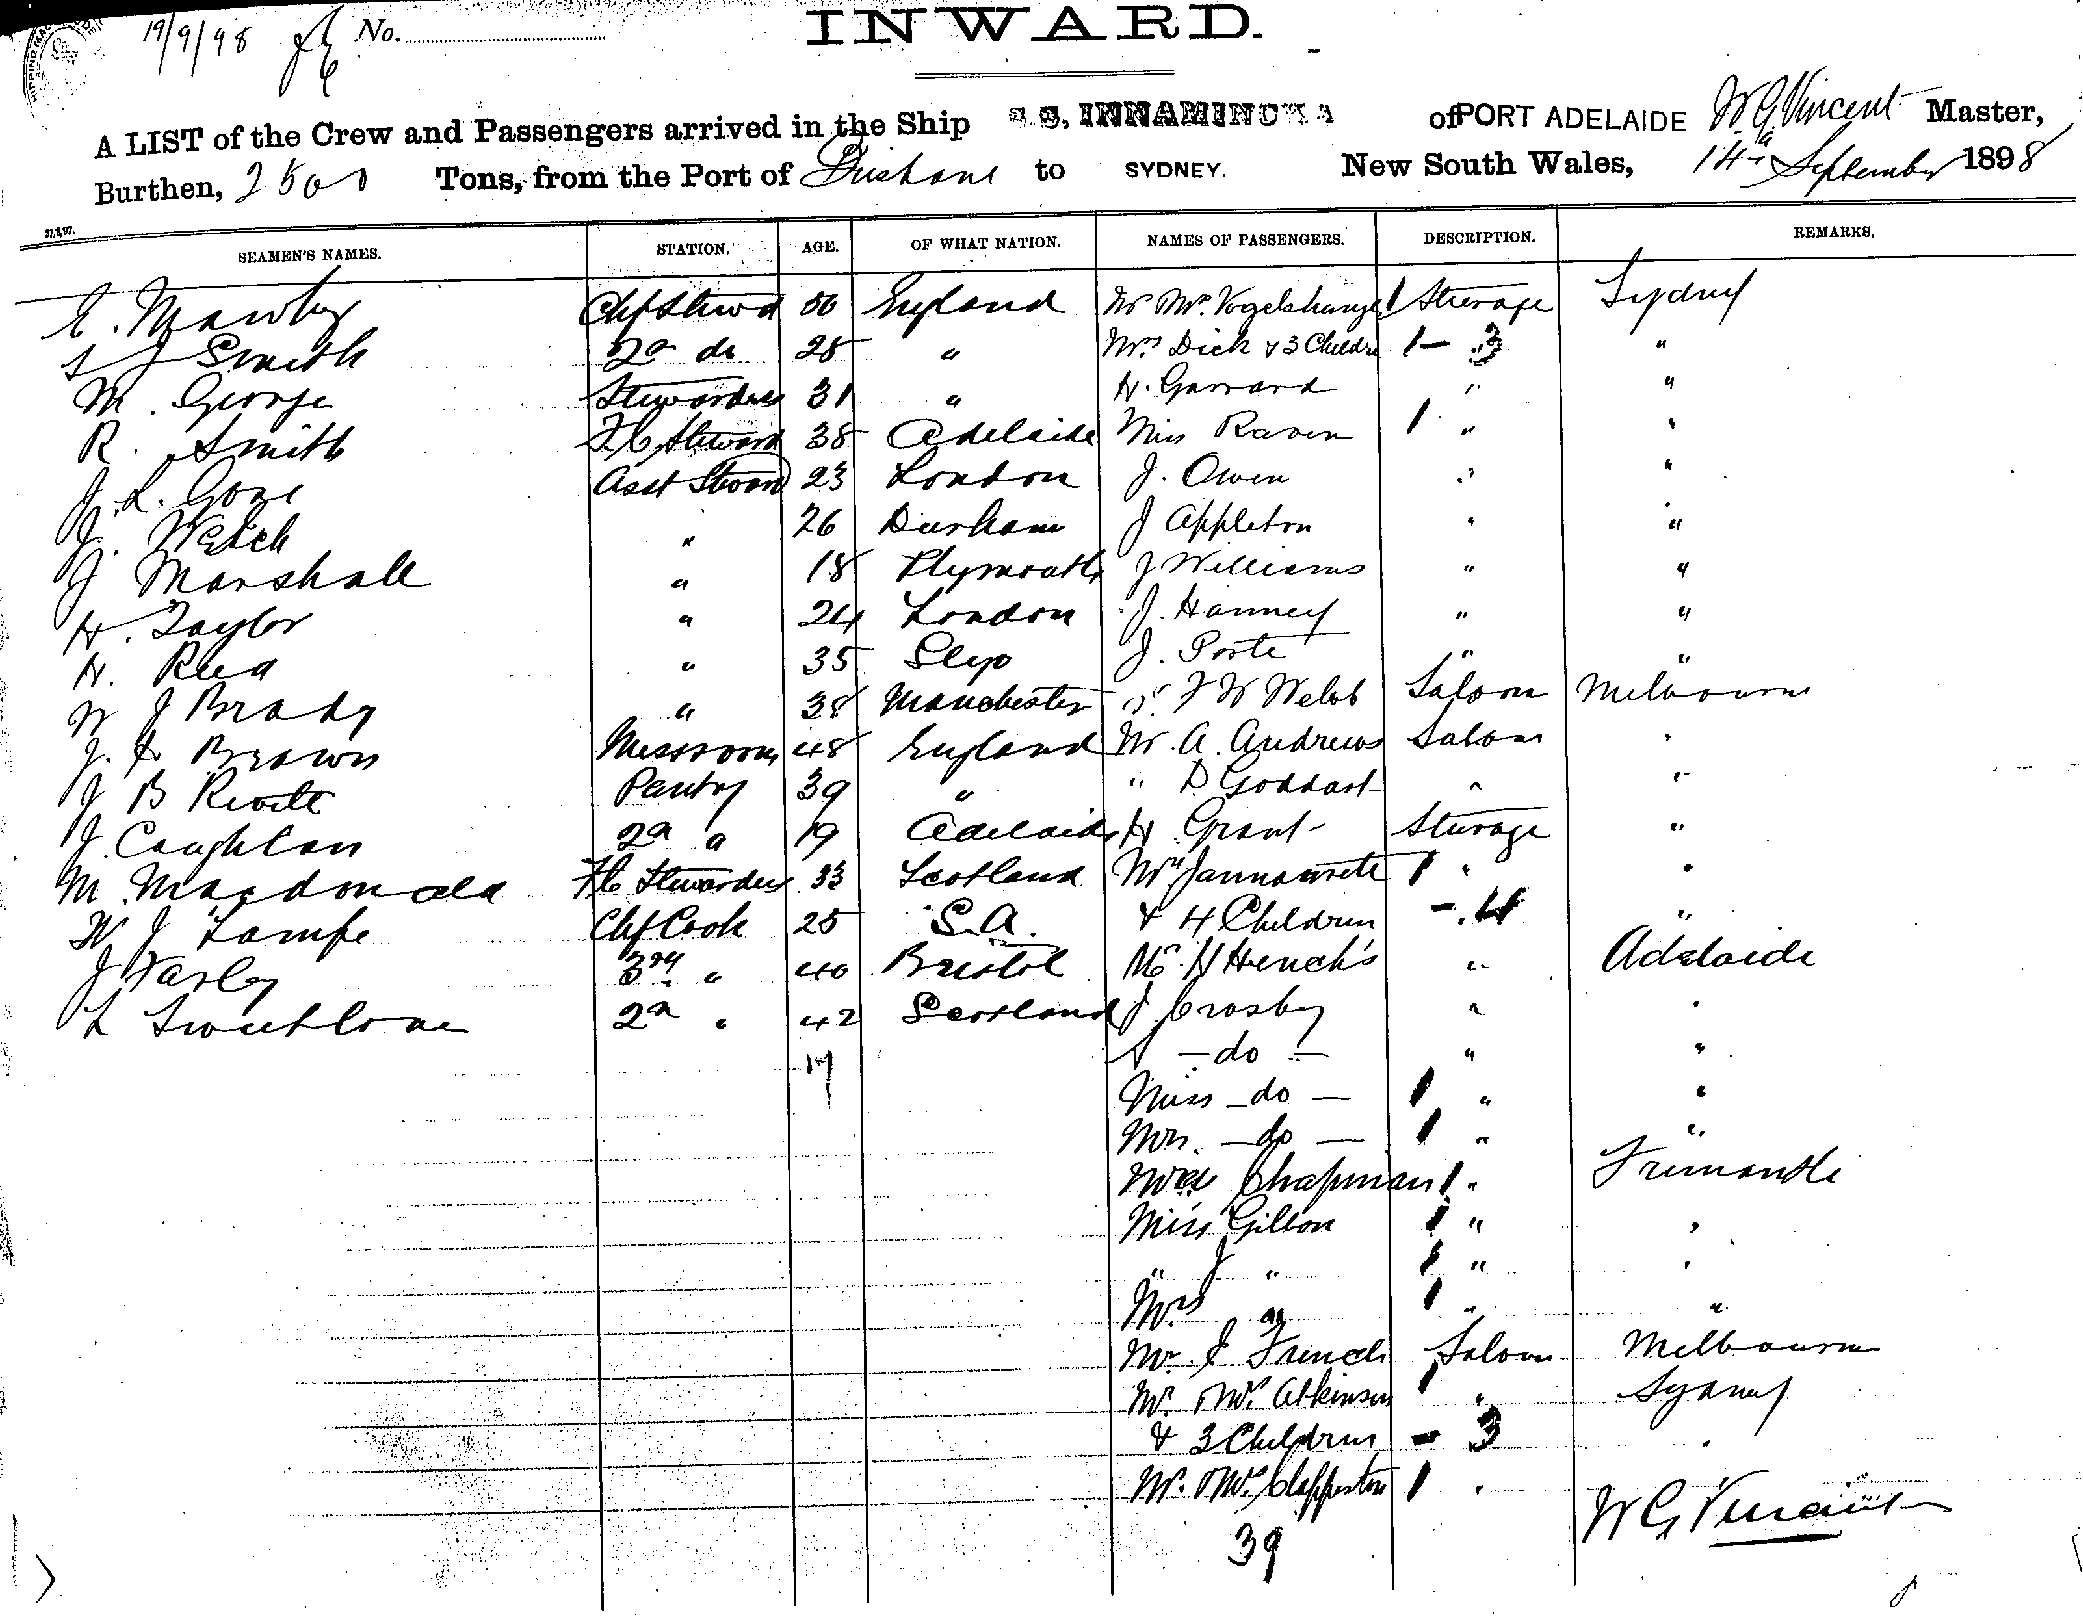 19/9/98 No.
INWARD.
A LIST of the Crew and Passengers arrived in the Ship S.S. INNAMINCKA of PORT ADELAIDE W G Vincent Master,
Burthen, 2500 Tons, from the Port of Brisbane to SYDNEY. New South Wales, 14th September 1898
SEAMEN'S NAMES. STATION. AGE. OF WHAT NATION. NAMES OF PASSENGERS. DESCRIPTION. REMARKS.
E. Mawby Chf Stewd 50 England Mr Mrs 1 Steerage Sydney
S J Smith 2nd do 28 " Mrs Dick & 3 Childn 1 - 3 "
M. George Stewardess 31 " H. Garrard " "
R. Smith F C Steward 38 Adelaide Miss Raven 1 " "
J. L. Gore Asst Steward 23 London J. Owen " "
J. Welch " 26 Durham J Appleton " "
J Marshall " 18 Plymouth J Williams " "
H. Taylor " 24 London J. Hanney " "
H. Reed " 35 J. Porte " "
W J Brady " 38 Manchester F W Webb Saloon Melbourne
J. Brown Messroom 48 England Mr. A. Andrews Saloon "
J B Pantry 39 " " D Goddart " "
J. Coughlan 2nd " 19 Adelaide H Grant Steerage "
M. Macdonald F C Stewardess 33 Scotland Mrs 1 " "
W J Lampe Chf Cook 25 S.A. & 4 Children - 4 "
J Varley 3rd " 40 Bristol Mr. H Hench's " Adelaide
L 2nd " 42 Scotland J Crosby " "
17 S - do - " "
Miss - do - 1 " "
Mrs. - do - 1 " "
Chapman 1 " Fremantle
Miss Gillon 1 " "
" J " 1 " "
Mrs " 1 " "
Mr. J French Saloon Melbourne
Mr. & Mrs. Atkinson 1 " Sydney
& 3 Children - 3 "
Mr. & Mrs. Clapperton 1 "
39
W G Vincent